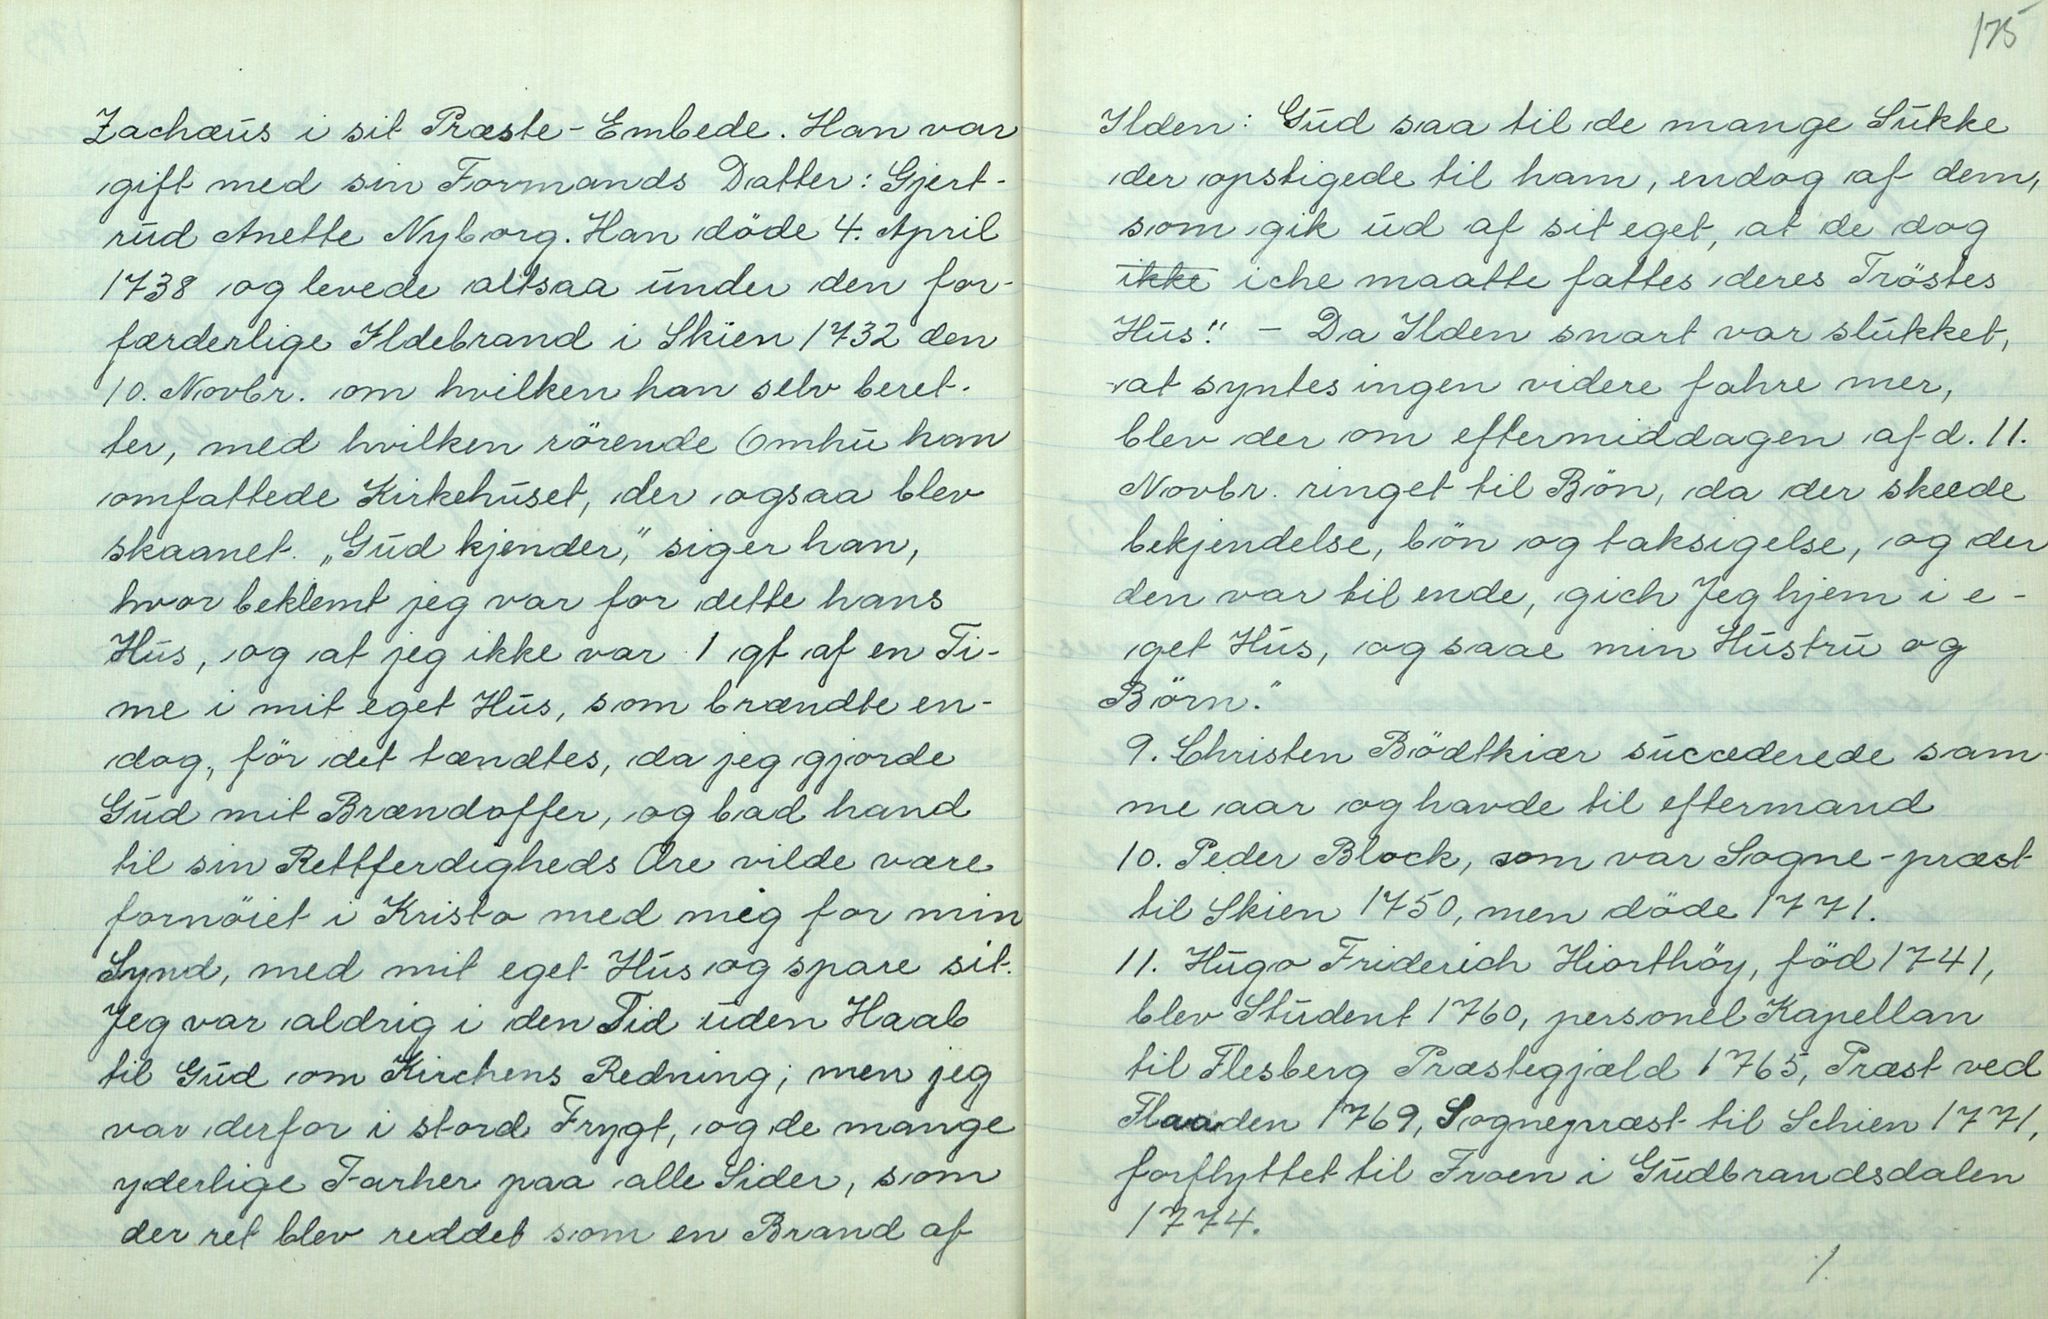 Zachæus i sit Præste-Embede. Han var
gift med sin Formands Datter: Gjert-
rud Anette Nyborg. Han döde 4. April
1738 og levede altsaa under den for-
færderlige Ildebrand i Skien 1732 den
10. Novbr. om hvilken han selv beret-
ter, med hvilken rörende Omhu han
omfattede Kirkehuset, der ogsaa blev
skaanet. „Gud kjender," siger han,
hvor beklemt jeg var for dette hans
Hus, og at jeg ikke var 1 qt af en Ti-
me i mit eget Hus, som brændte en-
dog, för det tændtes, da jeg gjorde
Gud mit Brændoffer, og bad hand
til sin Rettferdigheds Ære vilde være
fornöiet i Kristo med mig for min
Synd, med mit eget Hus og spare sit.
Jeg var aldrig i den Tid uden Haab
til Gud om Kirchens Redning; men jeg
var derfor i stord Frygt, og de mange
yderlige Farher paa alle Sider, som
der ret blev reddet som en Brand af
175
Ilden: Gud saa til de mange Sukke
der opstigede til ham, endog af dem,
som gik ud af sit eget, at de dog
ikke iche maatte fattes deres Tröstes
Hus!" - Da Ilden snart var slukket,
at syntes ingen videre fahre mer,
blev der om eftermiddagen af d. 11.
Novbr. ringet til Bön, da der skeede
bekjendelse, bön og taksigelse, og der
den var til ende, gich Jeg hjem i e-
get Hus, og saae min Hustru og
Börn."
9. Christen Bödtkiær succederede sam-
me aar og havde til eftermand
10. Peder Block, som var Sogne-præst
til Skien 1750, men döde 1771.
11. Hugo Friderich Hiorthöy, föd 1741,
blev Student 1760, personel Kapellan
til Flesberg Præstegjæld 1765, Præst ved
Flaaden 1769, Sognepræst til Schien 1771,
forflyttet til Froen i Gudbrandsdalen
1774.